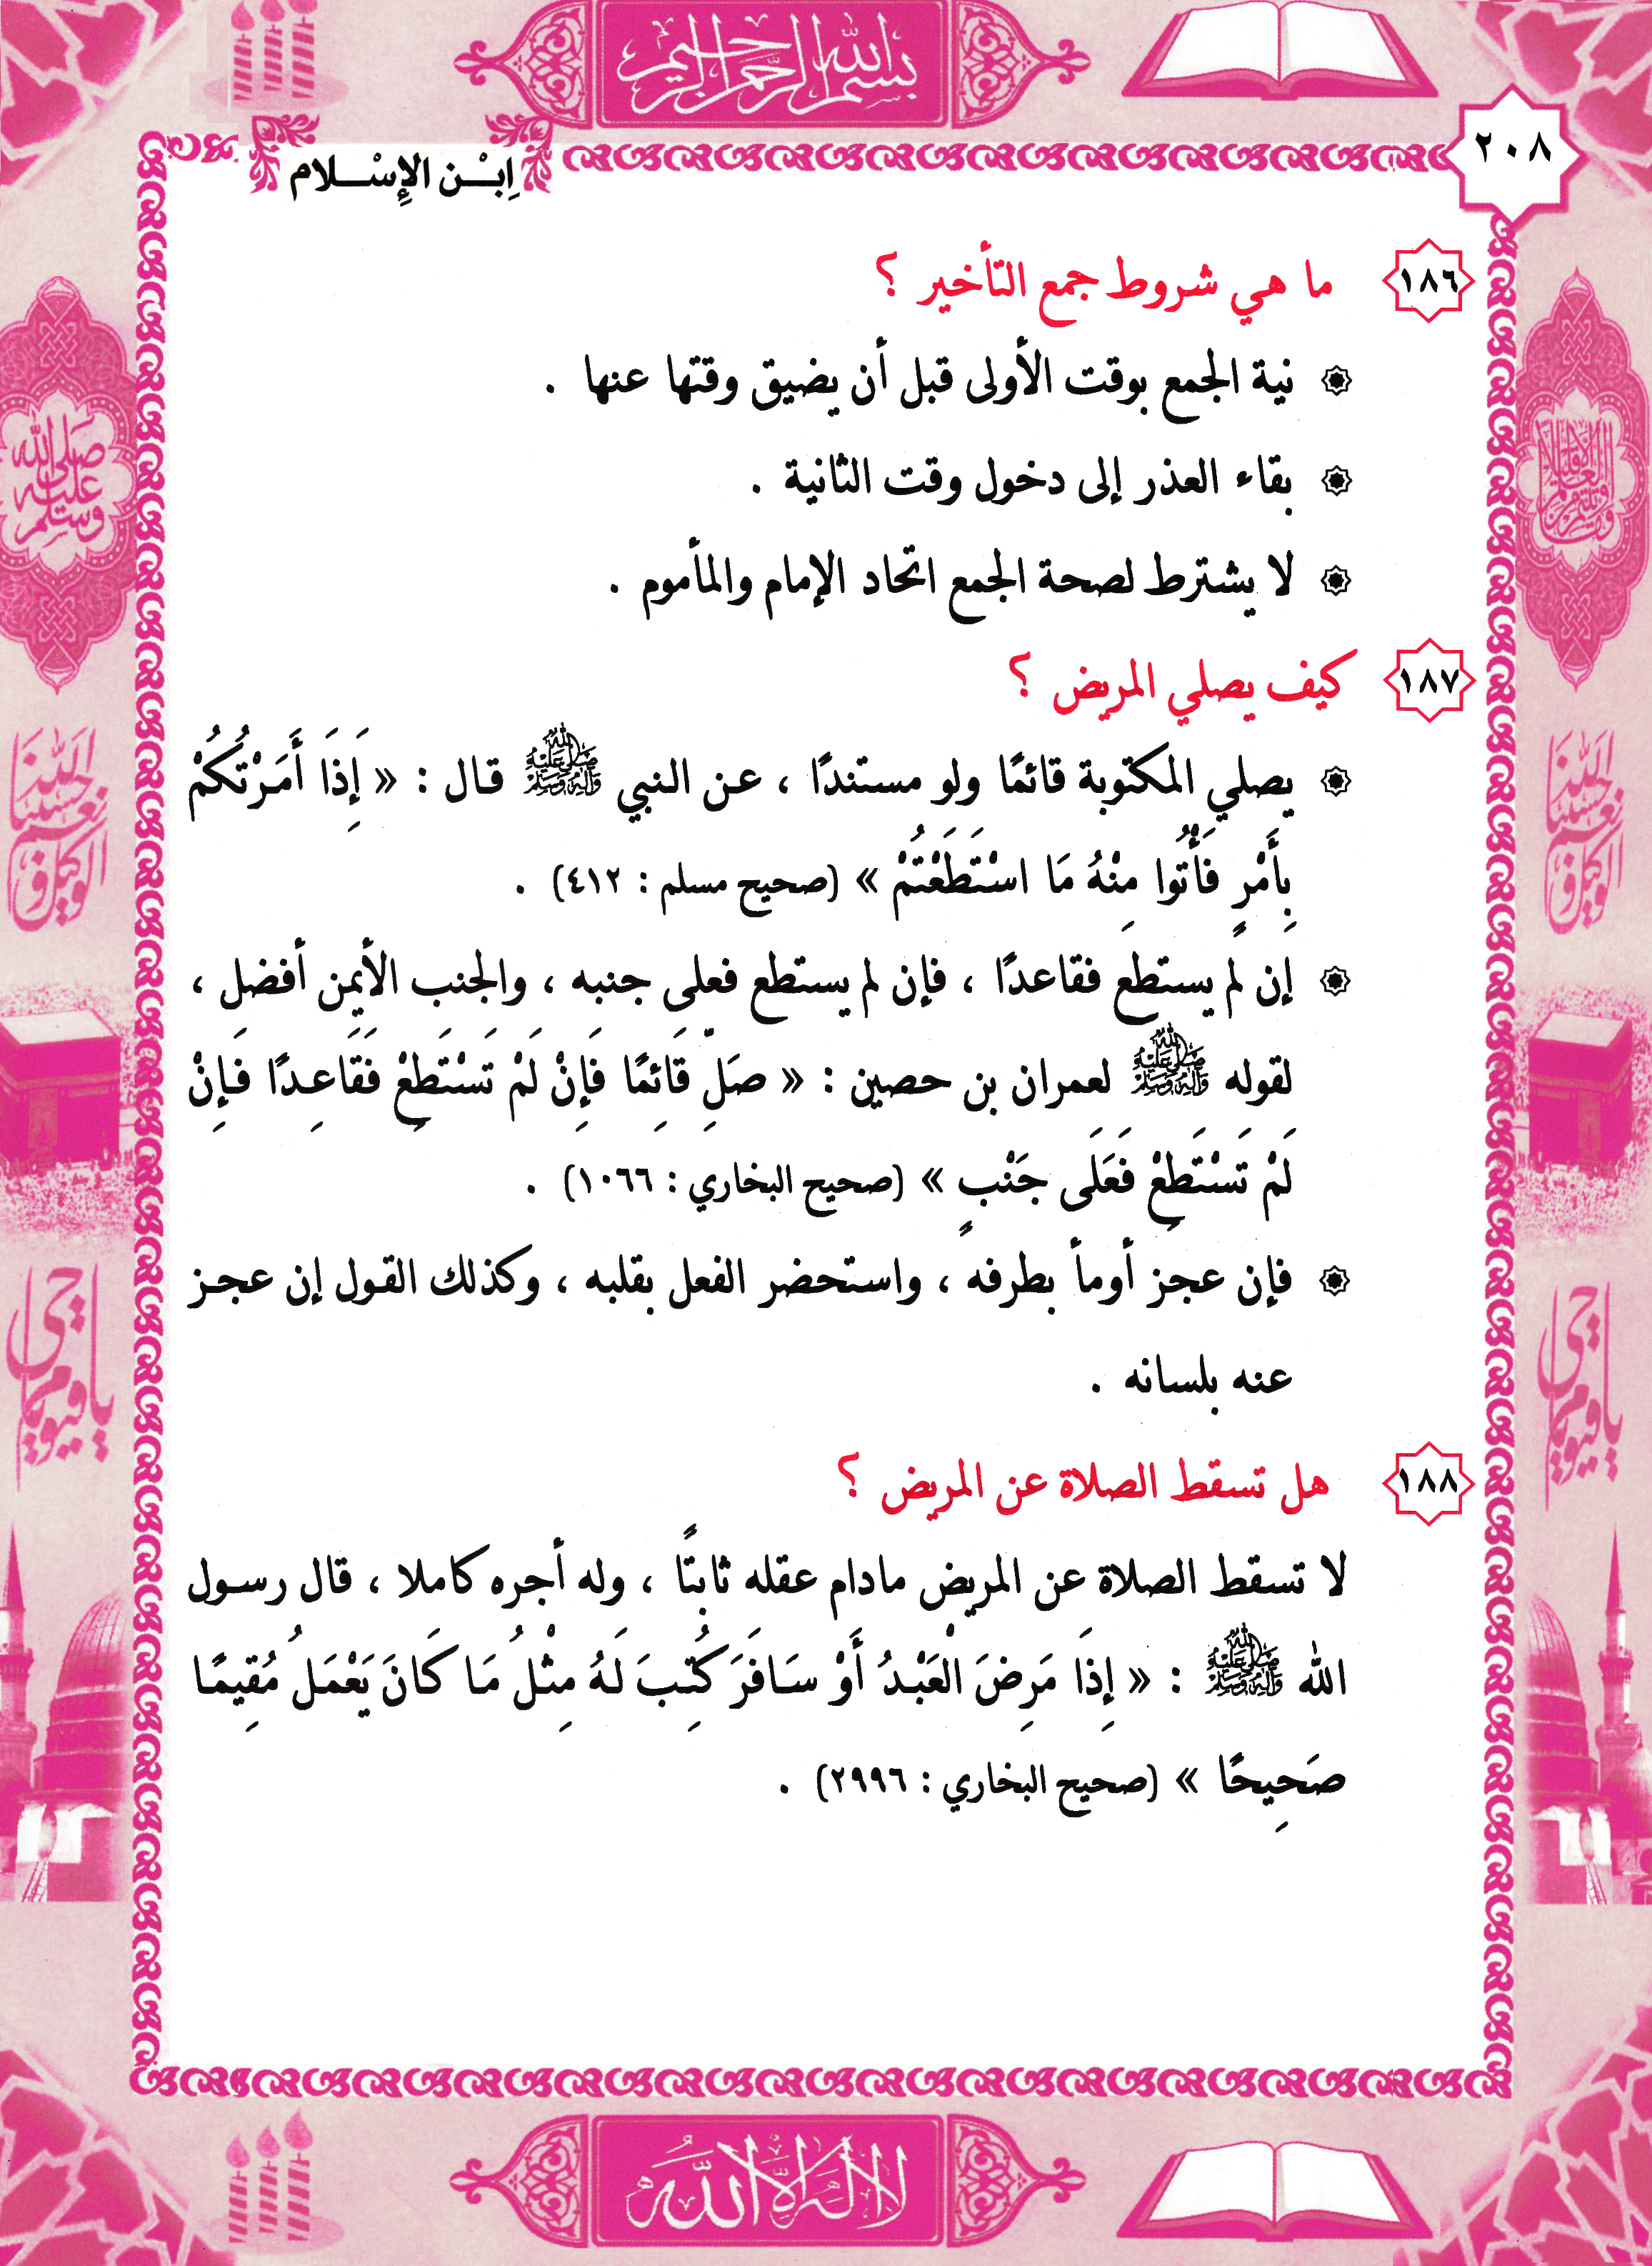 بسم الله الرحمن الرحيم
٢٠٨
اِبْـن الإِسْـلام
١٨٦ ما هي شروط جمع التأخير ؟
نية الجمع بوقت الأولى قبل أن يضيق وقتها عنها .
بقاء العذر إلى دخول وقت الثانية .
لا يشترط لصحة الجمع اتحاد الإمام والمأموم .
١٨٧ كيف يصلي المريض ؟
يصلي المكتوبة قائمًا ولو مستندًا ، عن النبي ﷺ قال : « إِذَا أَمَرْتُكُمْ
بِأَمْرٍ فَأْتُوا مِنْهُ مَا اسْتَطَعْتُمْ » (صحيح مسلم : ٤١٢) .
إن لم يستطع فقاعدًا ، فإن لم يستطع فعلى جنبه ، والجنب الأيمن أفضل ،
لقوله ﷺ لعمران بن حصين : « صَلِّ قَائِمًا فَإِنْ لَمْ تَسْتَطِعْ فَقَاعِدًا فَإِنْ
لَمْ تَسْتَطِعْ فَعَلَى جَنْبٍ » (صحيح البخاري : ١٠٦٦) .
فإن عجز أومأ بطرفه ، واستحضر الفعل بقلبه ، وكذلك القول إن عجز
عنه بلسانه .
١٨٨ هل تسقط الصلاة عن المريض ؟
لا تسقط الصلاة عن المريض مادام عقله ثابتًا ، وله أجره كاملا ، قال رسول
الله ﷺ : « إِذَا مَرِضَ الْعَبْدُ أَوْ سَافَرَ كُتِبَ لَهُ مِثْلُ مَا كَانَ يَعْمَلُ مُقِيمًا
صَحِيحًا » (صحيح البخاري : ٢٩٩٦) .
صلى الله عليه وسلم
يا حي يا قيوم
لا إله إلا الله